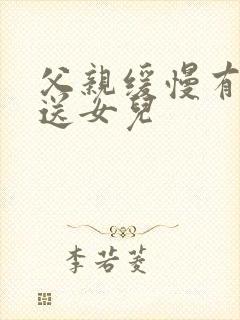 父親緩慢有
送女兒
李若菱